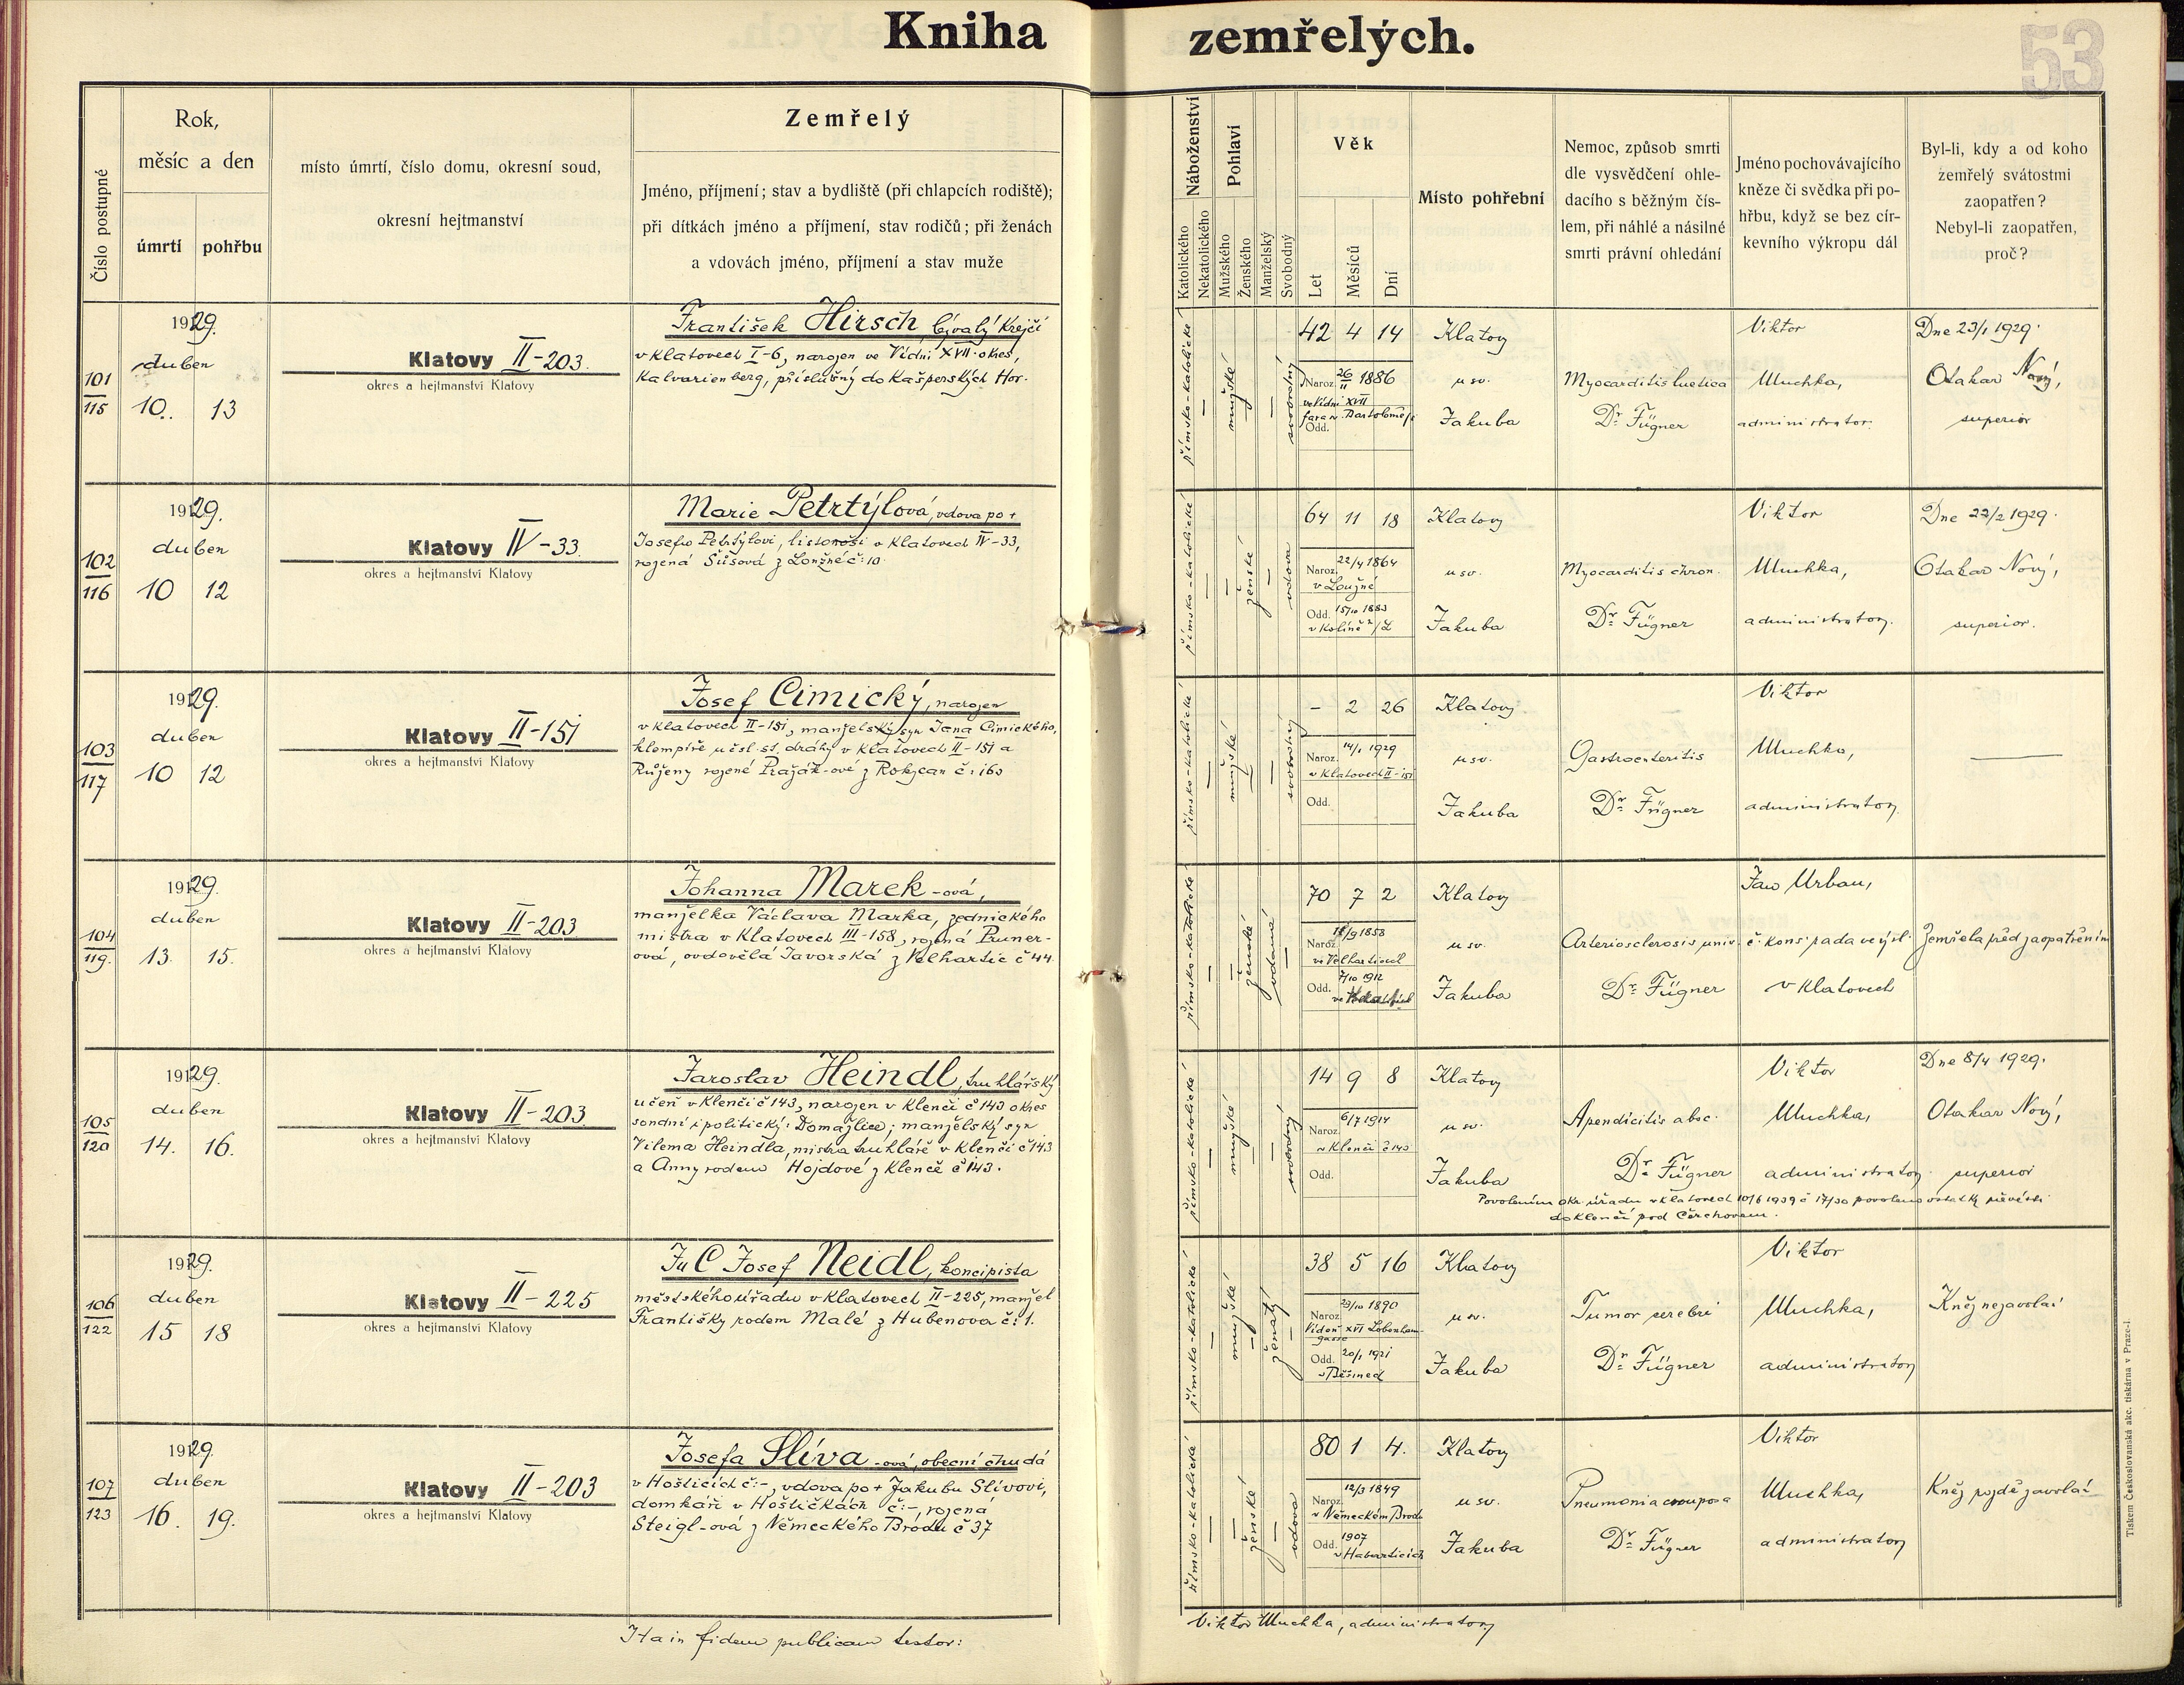 Kniha zemřelých.
53
Číslo postupné
Rok,
měsíc a den
úmrtí
pohřbu
místo úmrtí, číslo domu, okresní soud,
okresní hejtmanství
Zemřelý
Jméno, příjmení; stav a bydliště (při chlapcích rodiště);
při dítkách jméno a příjmení, stav rodičů; při ženách
a vdovách jméno, příjmení a stav muže
Náboženství
Katolického
Nekatolického
Pohlaví
Mužského
Ženského
Manželský
Svobodný
Věk
Let
Měsíců
Dní
Místo pohřební
Nemoc, způsob smrti
dle vysvědčení ohle-
dacího s běžným čís-
lem, při náhlé a násilné
smrti právní ohledání
Jméno pochovávajícího
kněze či svědka při po-
hřbu, když se bez cír-
kevního výkropu dál
Byl-li, kdy a od koho
zemřelý svátostmi
zaopatřen?
Nebyl-li zaopatřen,
proč?
101
115
1929.
duben
10. 13
Klatovy II-203.
okres a hejtmanství Klatovy
František Hirsch bývalý krejčí
v Klatovech I-6, narozen ve Vídni XVII. okres,
Kalvarienberg, příslušný do Kašperských Hor.
římsko-katolické
mužské
svobodný
42 4 14
Naroz. 26/II 1886
ve Vídni XVII
fara sv. Bartoloměje
Odd.
Klatovy
u sv.
Jakuba
Myocarditis luetica
Dr. Fügner
Viktor
Muchka,
administrator.
Dne 23/1 1929.
Otakar Nový,
superior
102
116
1929.
duben
10 12
Klatovy IV-33.
okres a hejtmanství Klatovy
Marie Petrtýlová, vdova po +
Josefu Petrtýlovi, listonoši v Klatovech IV-33,
rozená Šůsová z č: 10.
římsko-katolické
ženské
vdova
64 11 18
Naroz. 22/4 1864
v Loužné
Odd. 15/10 1883
v Kolíně n/L
Klatovy
u sv.
Jakuba
Myocarditis chron.
Dr. Fügner
Viktor
Muchka,
administrator.
Dne 22/2 1929.
Otakar Nový,
superior.
103
117
1929.
duben
10 12
Klatovy II-151
okres a hejtmanství Klatovy
Josef Cimický, narozen
v Klatovech II-151, manželský syn Jana Cimického,
klempíře u čsl. st. dráhy v Klatovech II-151 a
Růženy rozené Pražák-ové z Rokycan č: 160
římsko-katolické
mužské
svobodný
- 2 26
Naroz. 14/1 1929
v Klatovech II-151
Odd.
Klatovy
u sv.
Jakuba
Gastroenteritis
Dr. Fügner
Viktor
Muchka,
administrator.
104
119.
1929.
duben
13. 15.
Klatovy II-203
okres a hejtmanství Klatovy
Johanna Marek-ová,
manželka Václava Marka, zednického
mistra v Klatovech III-158, rozená Pruner-
ová, ovdovělá Javorská z Velhartic č 44.
římsko-katolické
ženské
vdaná
70 7 2
Naroz. 1858
ve Velharticích
Odd. 7/10 1912
Klatovy
u sv.
Jakuba
Arteriosclerosis univ.
Dr. Fügner
Jan Urban,
č. kons. rada ve výsl.
v Klatovech
Zemřela před zaopatřením
105
120
1929.
duben
14. 16.
Klatovy II-203.
okres a hejtmanství Klatovy
Jaroslav Heindl, truhlářský
učeň v Klenčí č 143, narozen v Klenčí č 143 okres
soudní i politický: Domažlice; manželský syn
Vilema Heindla, mistra truhláře v Klenčí č 143
a Anny rodem Hojdové z Klenčí č 143.
římsko-katolické
mužské
svobodný
14 9 8
Naroz. 6/7 1914
v Klenčí č 143
Odd.
Klatovy
u sv.
Jakuba
Apendicitis absc.
Dr. Fügner
Viktor
Muchka,
administrator
Dne 8/4 1929.
Otakar Nový,
superior
Povolením okr. úřadu v Klatovech 10/6 1939 č 17/30 povoleno ostatky převésti
do Klenčí pod Čerchovem.
106
122
1929.
duben
15 18
Klatovy II-225
okres a hejtmanství Klatovy
JuC Josef Neidl, koncipista
městského úřadu v Klatovech II-225, manžel
Františky rodem Malé z Hubenova č: 1.
římsko-katolické
mužské
ženatý
38 5 16
Naroz. 1890
Vídeň XVI Lobenhau-
gasse
Odd. 20/1 1921
v Běšinech
Klatovy
u sv.
Jakuba
Tumor cerebri
Dr. Fügner
Viktor
Muchka,
administrator
Kněz nezavolán
107
123
1929.
duben
16. 19.
Klatovy II-203
okres a hejtmanství Klatovy
Josefa Slíva-ová, obecní chudá
v Hošticích č:-, vdova po + Jakubu Slívovi,
domkáři v Hoštičkách č:-, rozená
Steigl-ová z Německého Brodu č 37
římsko-katolické
ženské
vdova
80 1 4.
Naroz. 12/3 1849
v Německém Brodě
Odd. 1907
Klatovy
u sv.
Jakuba
Pneumonia crouposa
Dr. Fügner
Viktor
Muchka,
administrator
Kněz pozdě zavolán
Ita in fidem publicam testor:
Viktor Muchka, administrator
Tiskem Československá akc. tiskárna v Praze-I.